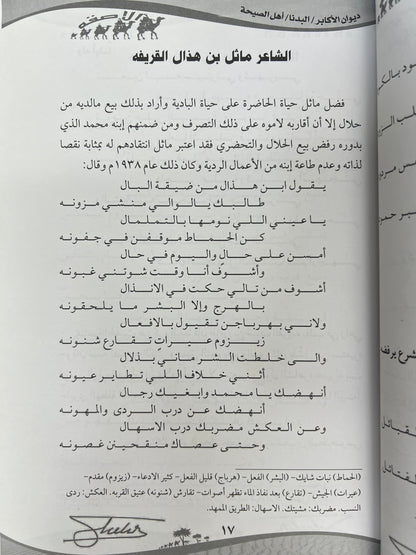 ديوان الأكابر/البدنا/أهل الصيحة
الشاعر ماثل بن هذال القريفه
✓ فضل ماثل حياة الحاضرة على حياة البادية وأراد بذلك بيع مالديه من
حلال إلا أن أقاربه لاموه على ذلك التصرف ومن ضمنهم إبنه محمد الذي
بدوره رفض بيع الحلال والتحضري فقد اعتبر ماثل انتقادهم له بمثابة نقصا
لذاته وعدم طاعة إبنه من الأعمال الردية وكان ذلك عام ١٩٣٨م وقال:
يقول ابن هذال من ضيقة البال
طالبك يالوالي منشي مزونه
يا عيني اللي نومها بالتملمال
كن الحماط موقفن في جفونه
أمسن على حالٍ واليوم في حال
وأشوف أنا وقت شوتني غبونه
أشوف من تالي حكت في الانذال
بالهرج وإلا البشر ما يلحقونه
ولاني بهرباجن تقيول بالافعال
زيزوم عيراتٍ تقارع شنونه
والى خلطت الشر ماني بذلال
أثني خلاف اللي تطاير عيونه
أنهضك يا محمد وابغيك رجال
أنهضك عن درب الردى والمهونه
وعن العكش مضربك درب الاسهال
وحتى عصاك منقحينن غصونه
(الحماط) نبات شايك- (البشر) الفعل- (هرباج) قليل الفعل- كثير الادعاء- (زيزوم) مقدم-
(عيرات) الجيش- (تقارع) بعد نفاذ الماء تظهر أصوات- تقارش (شنونه) عتيق القربه. العكش: ردى
النسب. مضربك: مشيتك. الاسهال: الطريق الممهد.
١٧